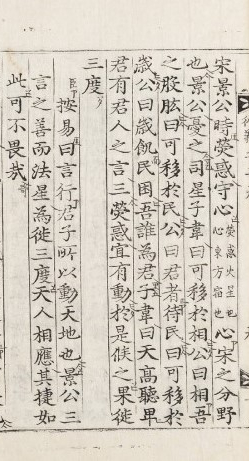 宋景公時熒惑守心熒惑火星也心東方宿也心宋之分野
也景公憂之司星子韋曰可移於相公曰相吾
之股肱曰可移於民公曰君者待民曰可移於
歲公曰歲飢民困吾誰為君子韋曰天高聽卑
君有君人之言三熒惑宜有動於是候之果徙
三度
臣按易曰言行君子所以動天地也景公三
言之善而法星為徙三度天人相應其捷如
此可不畏哉